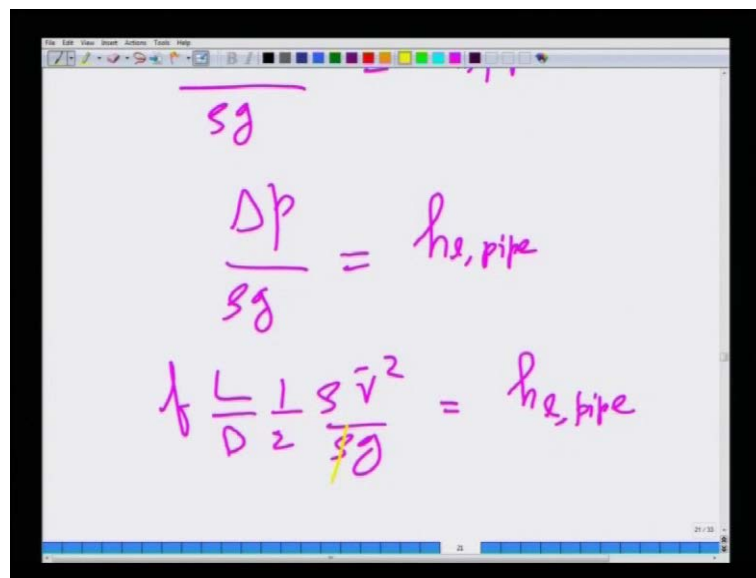 File Edit View Insert Actions Tools Help
ρg
Δp / ρg = hl, pipe
f L/D 1/2 ρV̄² / ρg = hl, pipe
21 / 33
21